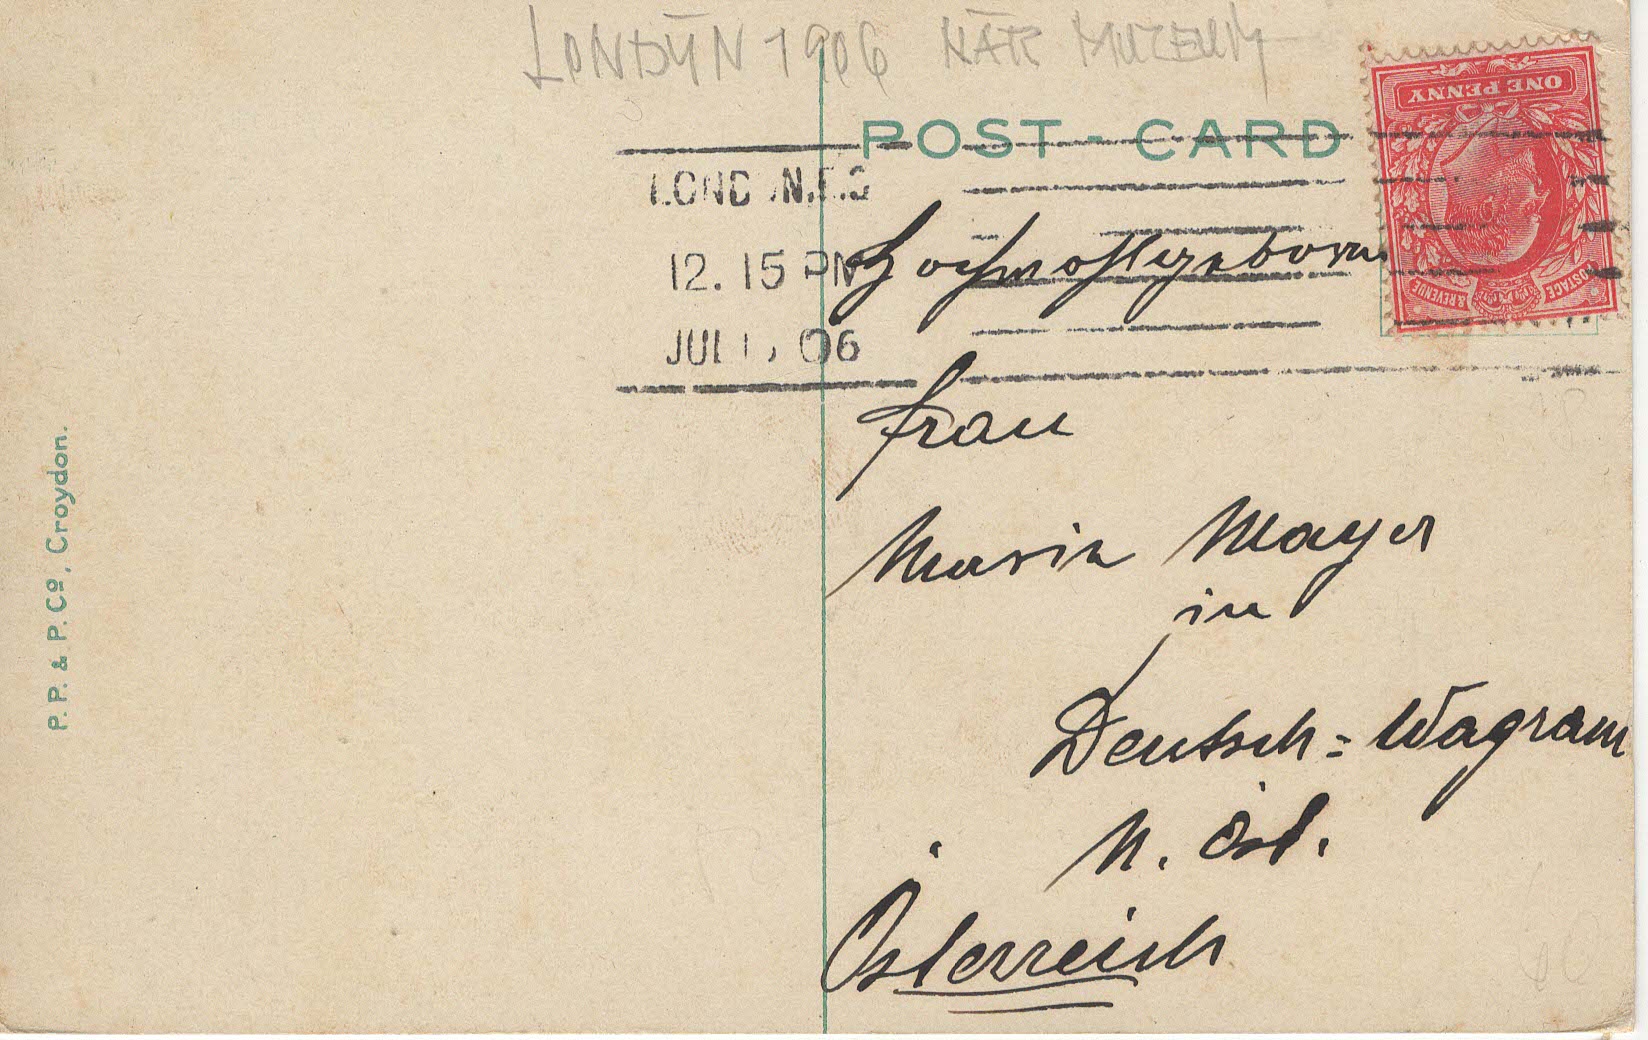 LONDÝN 1906 NÁR MUZEUM
POST-CARD
ONE PENNY
POSTAGE & REVENUE
LONDON.E.C
12.15 PM
JUL 06
Hochwohlgeboren
Frau
Maria Mayer
in
Deutsch=Wagram
N. Öst.
Österreich
P. P. & P. Cº, Croydon.